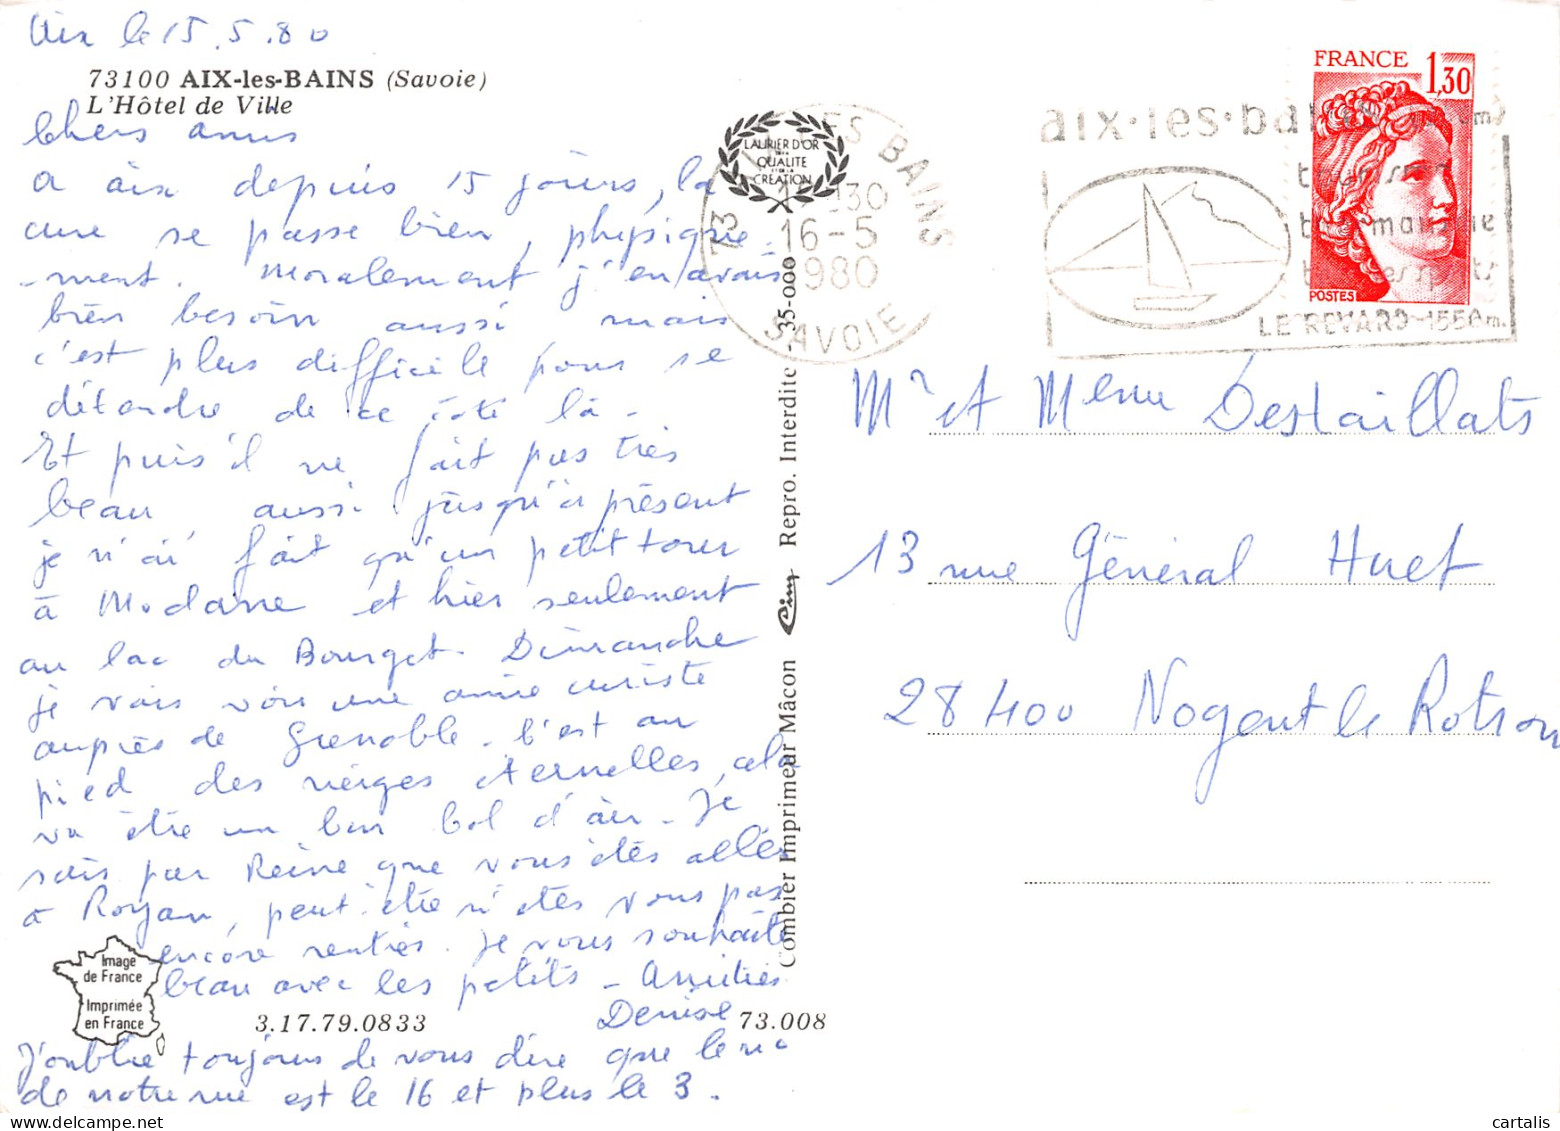 Aix le 15.5.80
73100 AIX-les-BAINS (Savoie)
L'Hôtel de Ville
Chers amis
a aix depuis 15 jours, la
cure se passe bien, physique-
-ment. Moralement j'en avais
bien besoin aussi mais
c'est plus difficile pour se
détendre de ce côté là -
Et puis il ne fait pas très
beau, aussi jusqu'à présent
je n'ai fait qu'un petit tour
à Modane et hier seulement
au lac du Bourget. Dimanche
je vais voir une amie curiste
auprès de Grenoble - C'est au
pied des neiges éternelles, cela
va être un bon bol d'air - Je
sais par Reine que vous êtes allés
à Royan, peut être n'êtes vous pas
encore rentrés. Je vous souhaite
beau avec les petits - Amitiés
Denise
J'oublie toujours de vous dire que le no
de notre rue est le 16 et plus le 3.
Image
de France
Imprimée
en France
3.17.79.0833
73.008
Combier Imprimeur Mâcon Cim Repro. Interdite 35-000
LAURIER D'OR
DE LA
QUALITE
ET DE LA
CREATION
73 LES BAINS
30
16-5
1980
SAVOIE
aix·les·bains
LE REVARD-1550m.
FRANCE
1,30
POSTES
Mr et Mme Destaillats
13 rue Général Huet
28400 Nogent le Rotrou
cartalis
www.delcampe.net